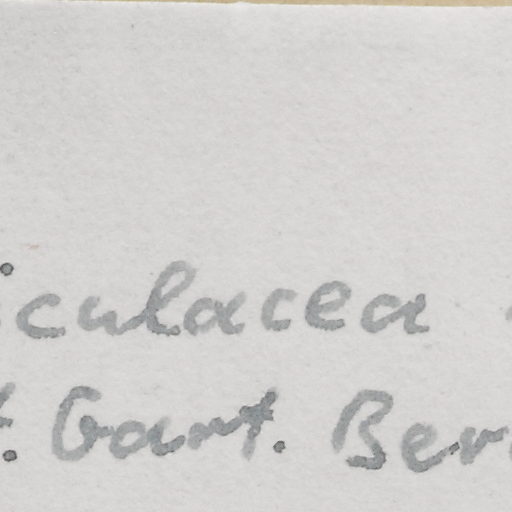 iculacea
t. Gart. Ber